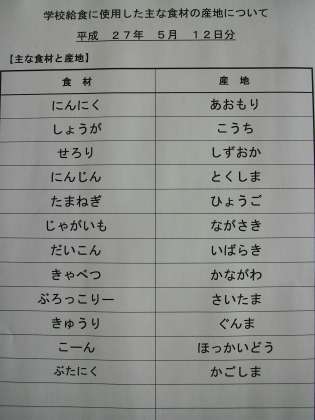 学校給食に使用した主な食材の産地について
平成　２７年　５月　１２日分
【主な食材と産地】
食　材　産　地
にんにく　あおもり
しょうが　こうち
せろり　しずおか
にんじん　とくしま
たまねぎ　ひょうご
じゃがいも　ながさき
だいこん　いばらき
きゃべつ　かながわ
ぶろっこりー　さいたま
きゅうり　ぐんま
こーん　ほっかいどう
ぶたにく　かごしま